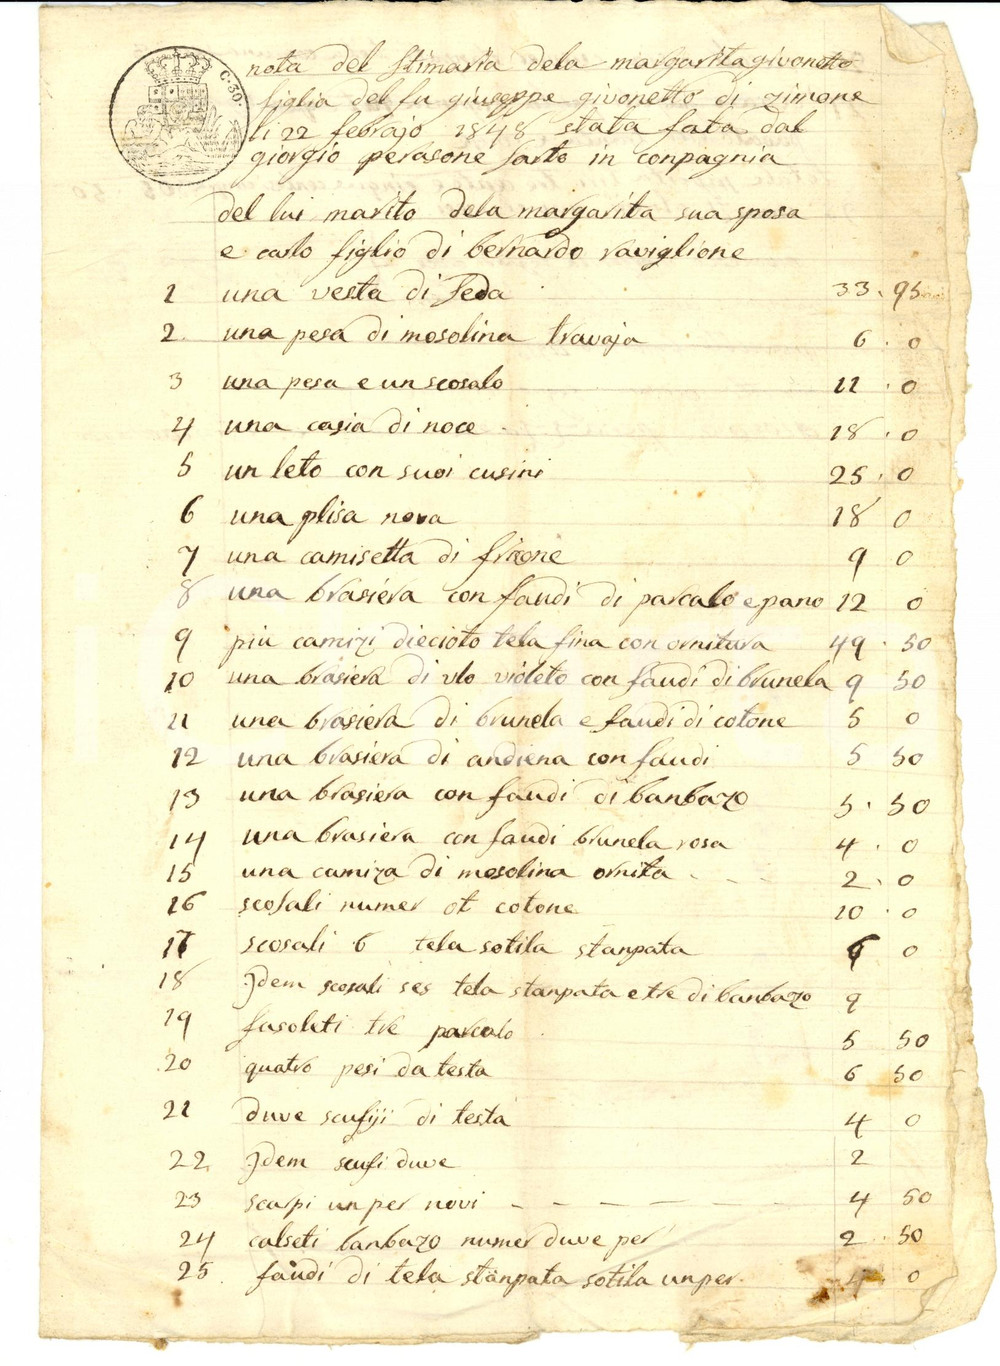 C. 30
nota del stimaria dela margarita givonetto
figlia del fu giuseppe givonetto di zimone
li 22 febrajo 1848 stata fata dal
giorgio perasone sarto in conpagnia
del lui marito dela margarita sua sposa
e carlo figlio di bernardo raviglione
1 una vesta di seda 33. 95
2. una pesa di mosolina travaja 6. 0
3 una pesa e un scosalo 11. 0
4 una casia di noce 18. 0
5 un leto con suoi cusini 25. 0
6 una plisa nova 18 0
7 una camisetta di frizone 9 0
8 una brasiera con faudi di parcalo e pano 12 0
9 più camizi diecioto tela fina con ornitura 49. 50
10 una brasiera di vlo violeto con faudi di brunela 9 50
11 una brasiera di brunela e faudi di cotone 5 0
12 una brasiera di andiena con faudi 5 50
13 una brasiera con faudi di banbazo 5. 50
14 una brasiera con faudi brunela rosa 4. 0
15 una camiza di mosolina ornita - - - 2. 0
16 scosali numer ot cotone 10. 0
17 scosali 6 tela sotila stanpata 6 0
18 Jdem scosali ses tela stanpata e tre di banbazo 9
19 fasoleti tre parcalo 5 50
20 quatro pesi da testa 6 50
21 duve scufiji di testa 4 0
22. Jdem scufi duve 2
23 scarpi un per novi - - - - - 4 50
24 calseti banbazo numer duve per 2. 50
25. faudi di tela stanpata sotila un per. 4. 0